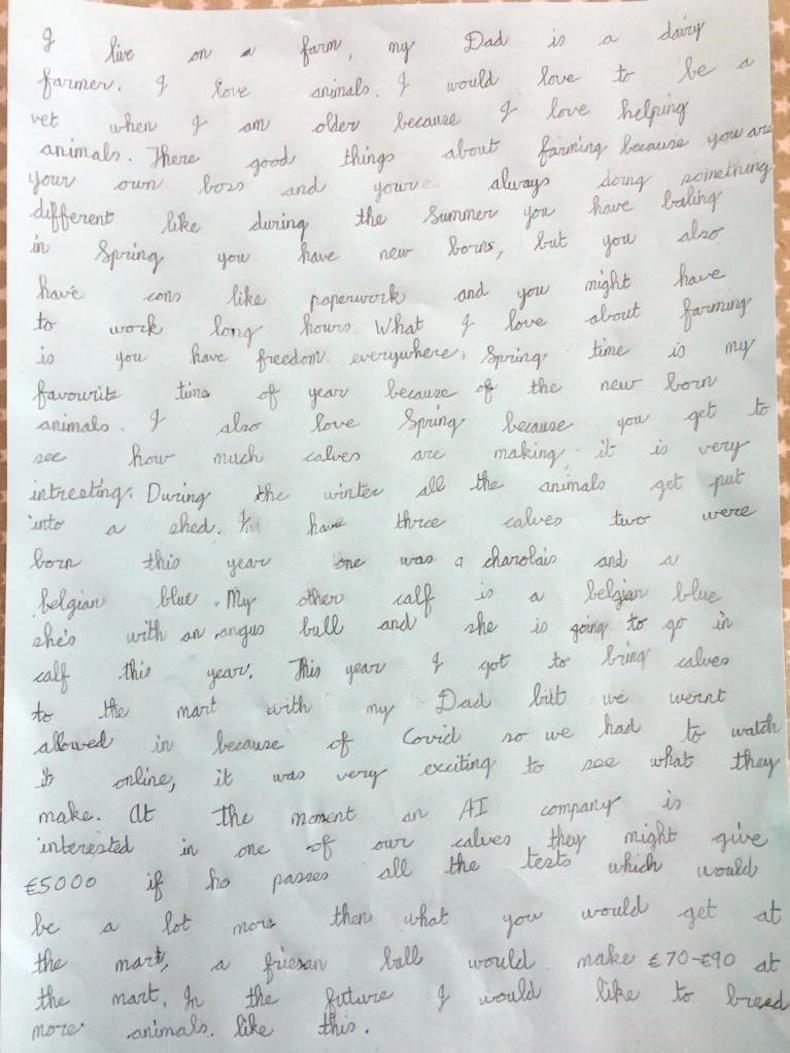 I live on a farm, my Dad is a dairy
farmer. I love animals. I would love to be a
vet when I am older because I love helping
animals. There good things about farming because you are
your own boss and youre always doing something
different like during the Summer you have baling
in Spring you have new borns, but you also
have cons like paperwork and you might have
to work long hours. What I love about farming
is you have freedom everywhere. Spring time is my
favourite time of year because of the new born
animals. I also love Spring because you get to
see how much calves are making, it is very
intresting. During the winter all the animals get put
into a shed. I have three calves two were
born this year one was a charolais and a
belgian blue. My other calf is a belgian blue
she's with an angus bull and she is going to go in
calf this year. This year I got to bring calves
to the mart with my Dad but we wernt
allowed in because of Covid so we had to watch
it online, it was very exciting to see what they
make. At the moment an AI company is
interested in one of our calves they might give
€5000 if he passes all the tests which would
be a lot more then what you would get at
the mart, a friesan bull would make €70-€90 at
the mart. In the future I would like to breed
more animals like this.